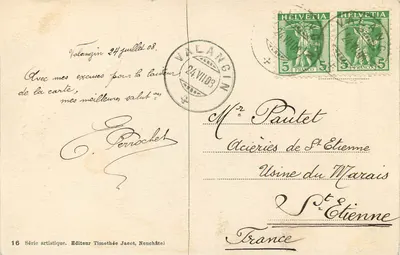 Valangin 24 juillet 08.
Avec mes excuses pour la
de la carte,
mes meilleures salut
E. Perrochet
16 Série artistique. Editeur Timothée Jacot, Neuchâtel
VALANGIN
24.VII.08
HELVETIA
5
5
HELVETIA
5
5
Mr Pautet
Aciéries de St Etienne
Usine du Marais
St Etienne
France